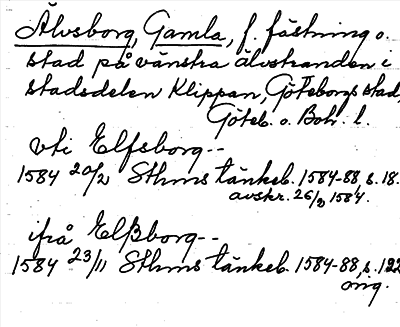 Älvsborg, Gamla, f. fästning o.
stad på vänstra älvstranden i
stadsdelen Klippan, Göteborgs stad,
Göteb. o. Boh. l.
vti Elfsborg--
1584 20/2 Sthms tänkeb. 1584-88 s. 18.
avskr. 26/2 1584.
ifrå Elßborg--
1584 23/11 Sthms tänkeb. 1584-88, s. 122
orig.